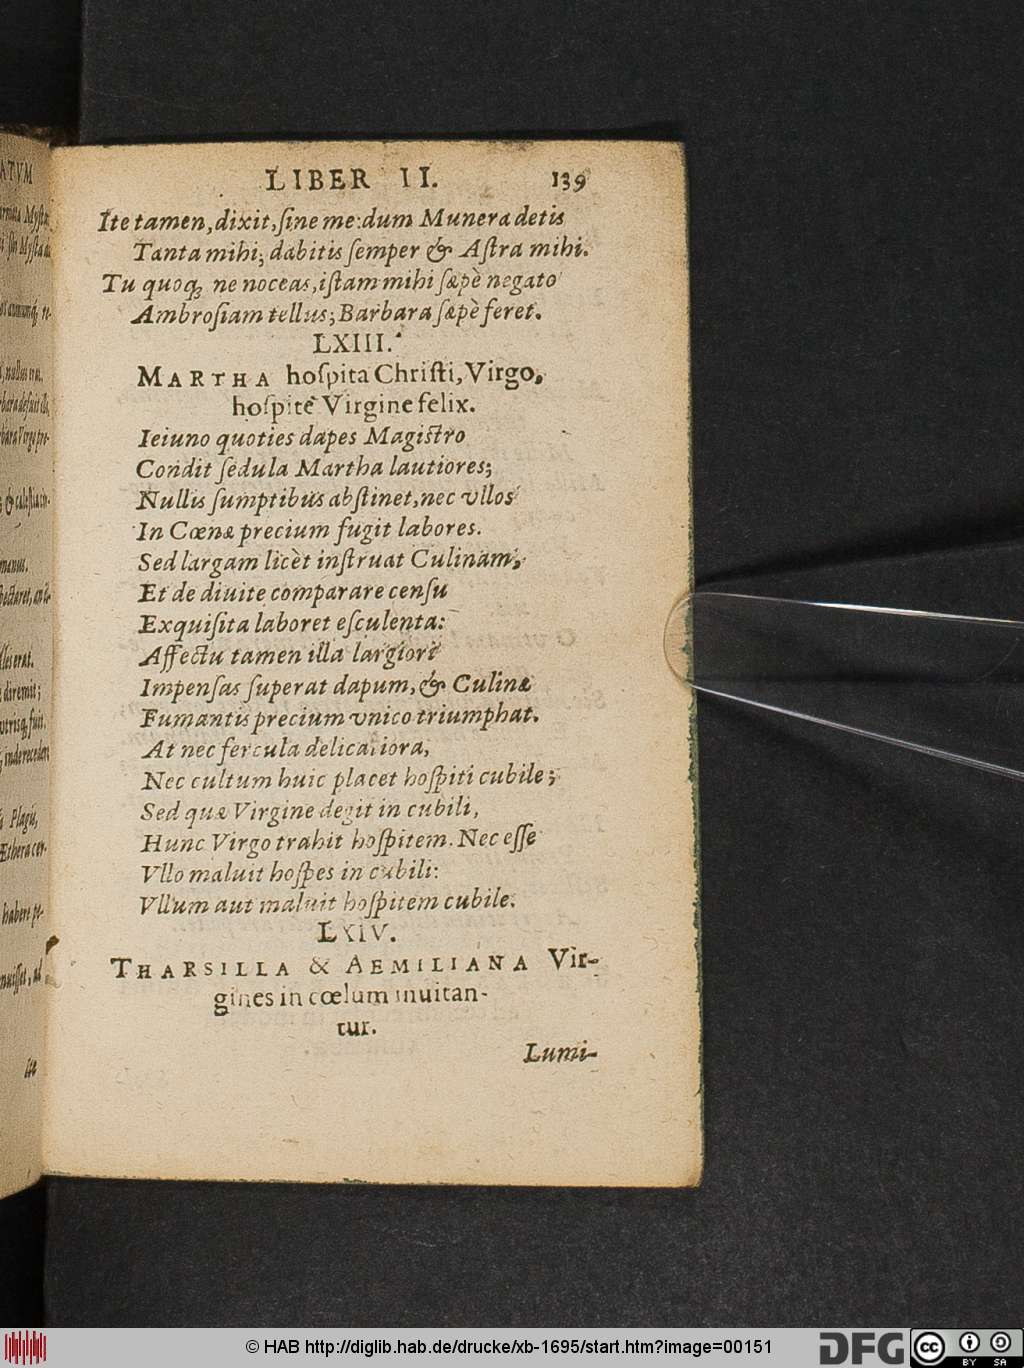 LIBER II. 139
Ite tamen, dixit, ſine me: dum Munera detis
Tanta mihi; dabitis ſemper & Aſtra mihi.
Tu quoq; ne noceas, iſtam mihi ſæpè negato
Ambroſiam tellus; Barbara ſæpè feret.
LXIII.
MARTHA hoſpita Chriſti, Virgo,
hoſpite Virgine felix.
Ieiuno quoties dapes Magiſtro
Condit ſedula Martha lautiores;
Nullis ſumptibus abſtinet, nec vllos
In Cœnæ precium fugit labores.
Sed largam licèt inſtruat Culinam,
Et de diuite comparare cenſu
Exquiſita laboret eſculenta:
Affectu tamen illa largiori
Impenſas ſuperat dapum, & Culinæ
Fumantis precium vnico triumphat.
At nec fercula delicatiora,
Nec cultum huic placet hoſpiti cubile;
Sed quæ Virgine degit in cubili,
Hunc Virgo trahit hoſpitem. Nec eſſe
Vllo maluit hoſpes in cubili:
Vllum aut maluit hoſpitem cubile.
LXIV.
THARSILLA & AEMILIANA Vir-
gines in cœlum inuitan-
tur.
Lumi-
© HAB http://diglib.hab.de/drucke/xb-1695/start.htm?image=00151
DFG cc BY SA